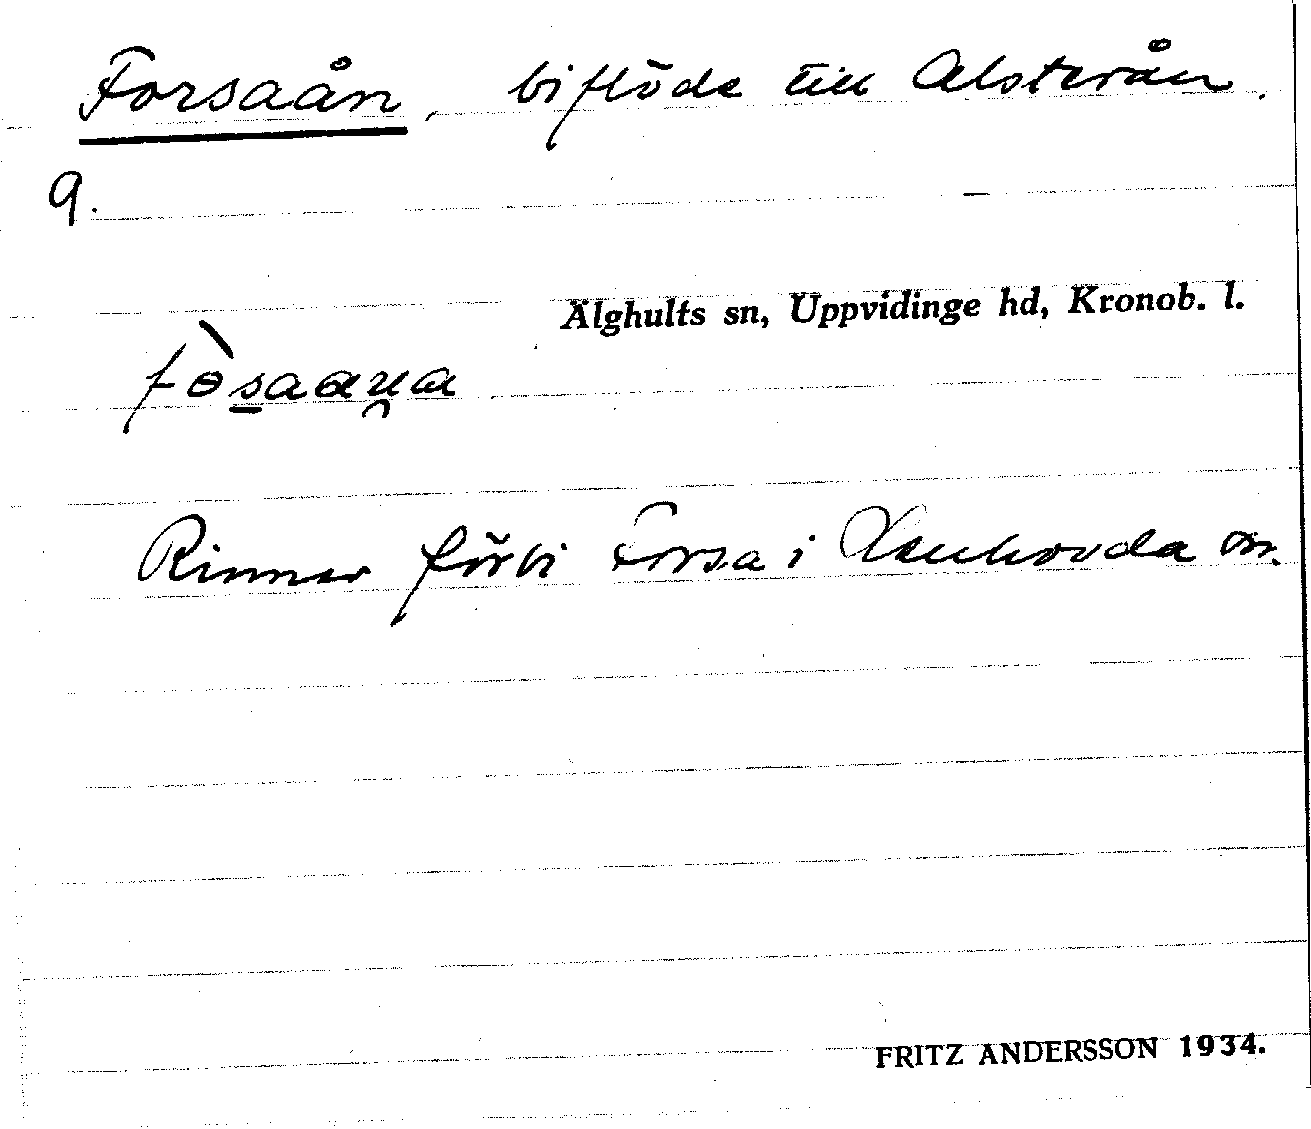 Forsaån, biflöde till Alsterån.
9.
Älghults sn, Uppvidinge hd, Kronob. l.
Rinner förbi Forsa i Lenhovda sn.
FRITZ ANDERSSON 1934.